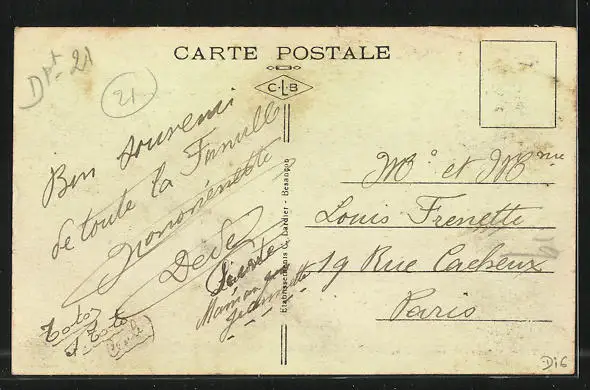 CARTE POSTALE
Dpt 21
21
C·L·B
Bon souvenir
de toute la Famille
Dédé
Maman
Jeannette
Toto
Etablissements C. Lardier - Besançon
Mr et Mme
Louis Frenette
19 Rue Cacheux
Paris
D16